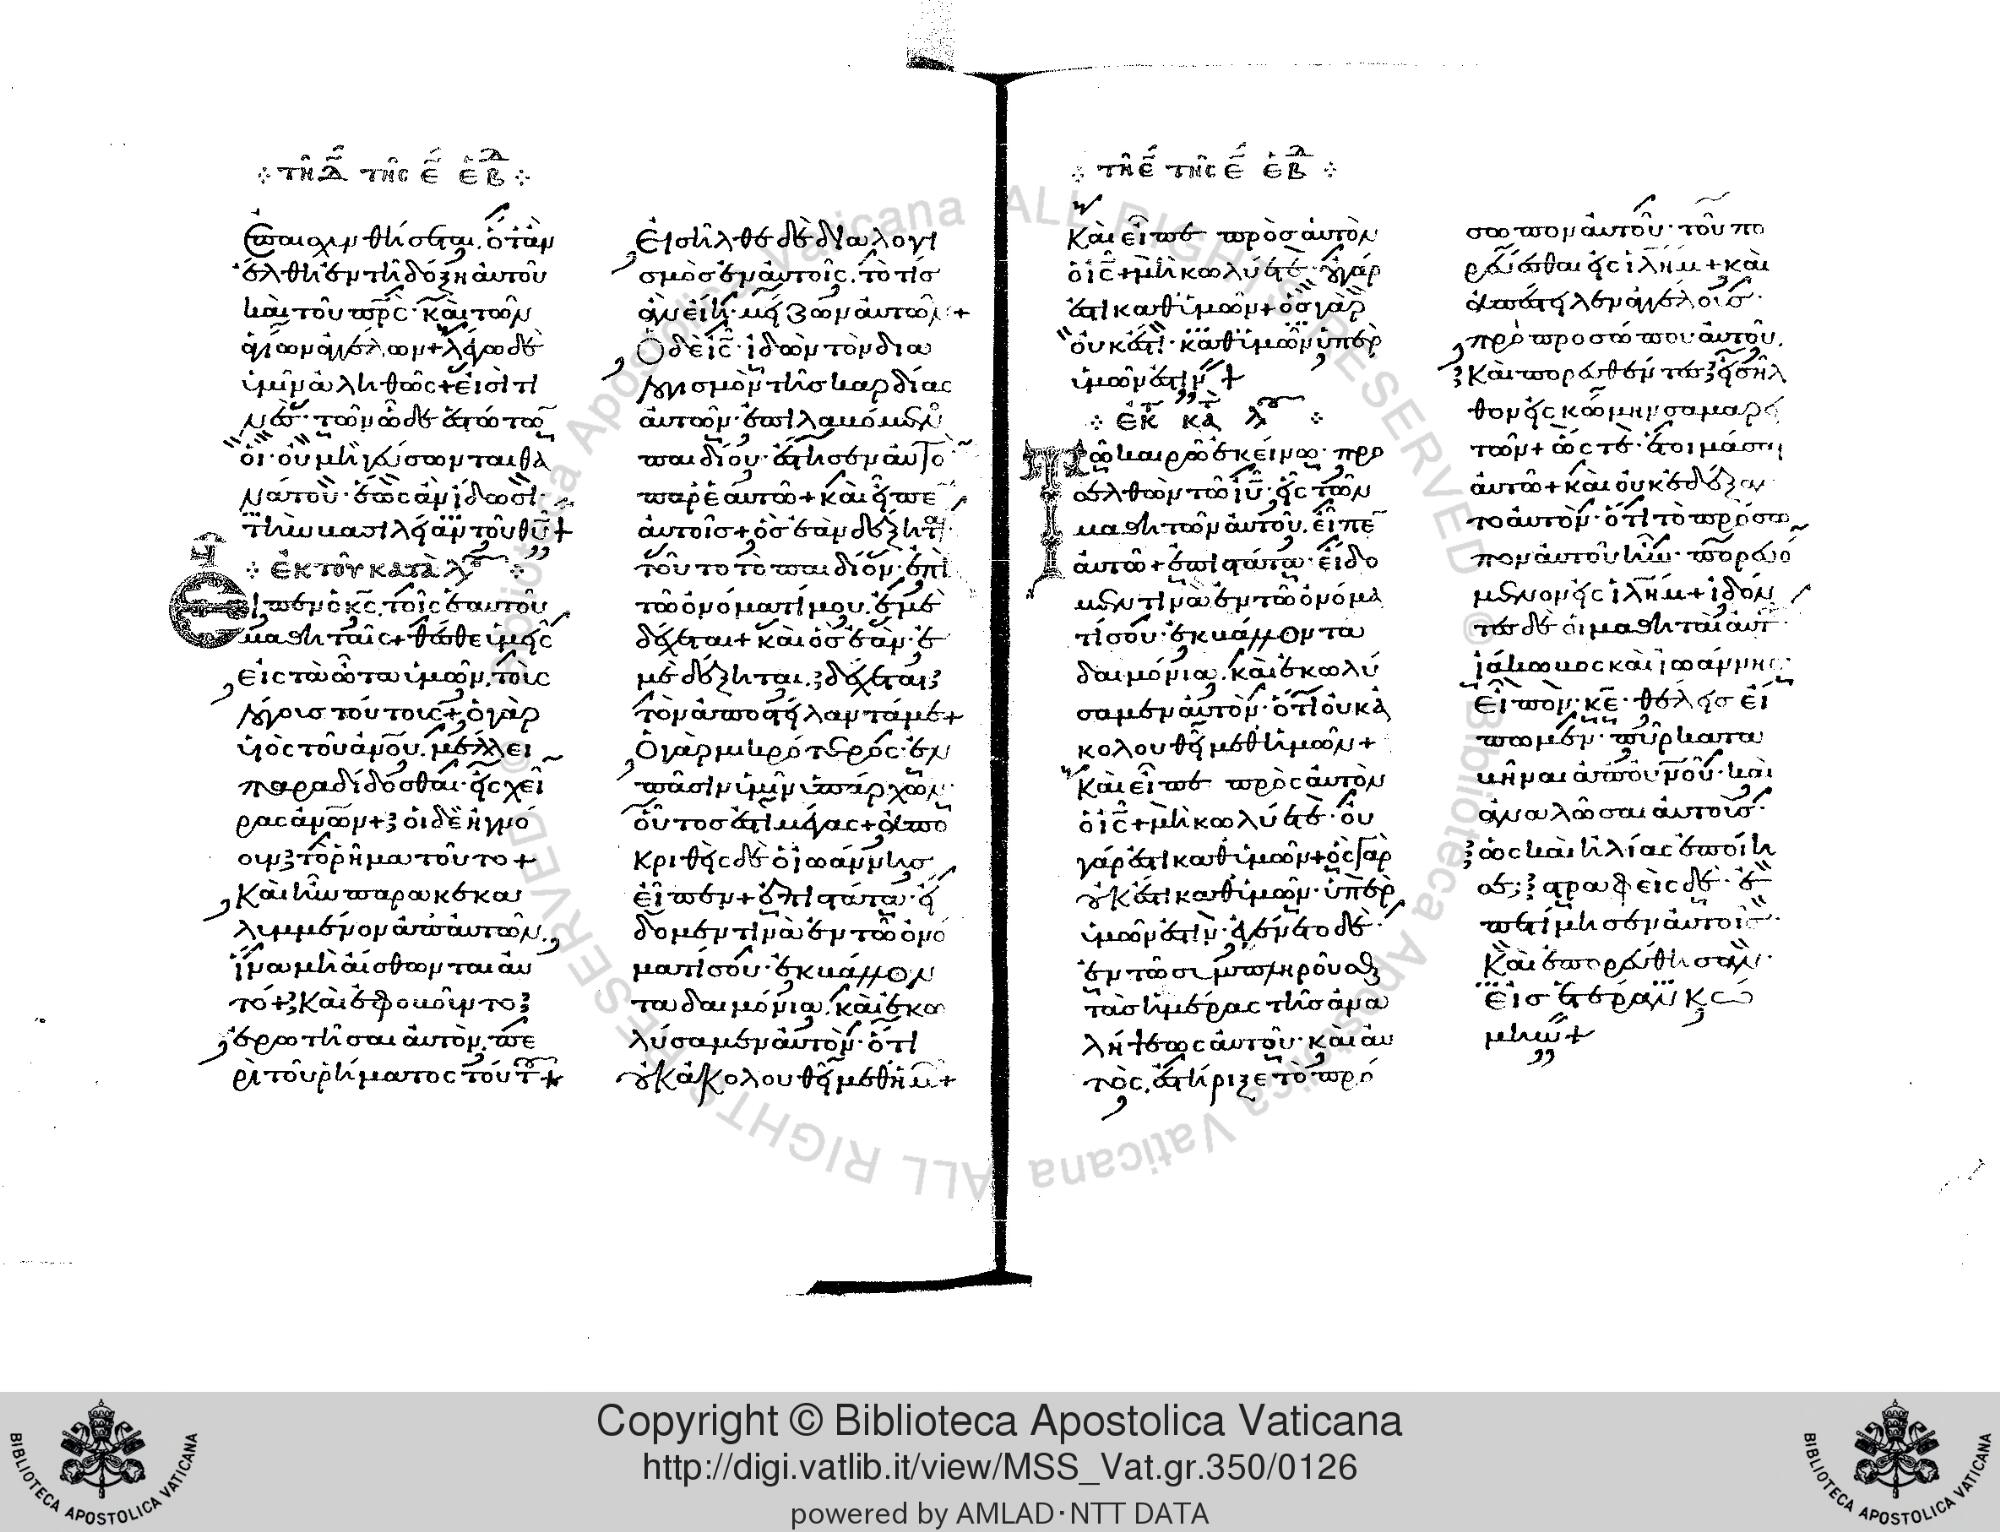 ⁘ τῆ Δ̅ τῆς ε̅ ἑβ̅δ ⁘
ἐπαισχυνθήσεται. ὅταν
ἔλθη ἐν τῆ δόξη αὐτοῦ
καὶ τοῦ πρ̅ς· καὶ τῶν
ἁγίων ἀγγέλων + λέγω δὲ
ὑμῖν ἀληθῶς + εἰσί τι
νες τῶν ὧδε ἑστώτω̅
οἳ οὐ μὴ γεύσωνται θα
νάτου· ἕως ἂν ἴδωσι·
τὴν βασιλείαν τοῦ θυ̅ +
⁘ ἐκ τοῦ κατὰ λου ⁘
Εἶπεν ὁ κς̅. τοῖς ἑαυτοῦ
μαθηταῖς + θέσθε ὑμεῖς
εἰς τὰ ὦτα ὑμῶν. τοὺς
λόγους τούτους + ὁ γὰρ
υἱὸς τοῦ ἀνου̅. μέλλει
παραδίδοσθαι· εἰς χεῖ
ρας ἀνω̅ν + οἱ δὲ ἠγνό
ουν τὸ ῥῆμα τοῦτο +
Καὶ ἦν παρακεκα
λυμμένον ἀπ' αὐτῶν.
ἵνα μὴ αἴσθωνται αὐ
τό + Καὶ ἐφοβοῦντο
ἐρωτῆσαι αὐτὸν. πε
ρὶ τοῦ ῥήματος τούτ +
Εἰσῆλθε δὲ διαλογι
σμὸς ἐν αὐτοῖς. τὸ τίς
ἂν εἴη· μείζων αὐτῶν +
Ὁ δὲ ις̅· ἰδὼν τὸν δια
λογισμὸν τῆς καρδίας
αὐτῶν· ἐπιλαβόμενο
παιδίου· ἔστησεν αὐτὸ
παρ' ἑαυτῶ + καὶ εἶπε̅
αὐτοῖς + ὃς ἐὰν δέξητ
τοῦτο τὸ παιδίον· ἐπὶ
τῶ ὀνόματί μου. ἐμὲ
δέχεται + καὶ ὃς ἐὰν ἐ
μὲ δέξηται. δέχεται
τὸν ἀποστείλαντά με +
Ὁ γὰρ μικρότερος· ἐν
πᾶσιν ὑμῖν ὑπάρχων·
οὗτος ἐστὶ μέγας + ἀπο
κριθεὶς δὲ ὁ ἰωάννης
εἶπεν + ἐπιστάτα· εἴ
δομέν τινα ἐν τῶ ὀνό
ματί σου· ἐκβάλλον
τα δαιμόνια. καὶ ἐκω
λύσαμεν αὐτὸν· ὅτι
οὐκ ἀκολουθεῖ μεθ ἡμ +
⁘ τῆ ε̅ τῆς ε̅ ἑβ̅δ ⁘
Καὶ εἶπε πρὸς αὐτὸν
ὁ ις̅ + μὴ κωλύετε· οὐ γάρ
ἐστι καθ' ὑμῶν + ὃς γὰρ
οὐκ ἔστι· καθ' ὑμῶν ὑπὲρ
ὑμῶν ἐστὶν +
⁘ ἐκ κα λου ⁘
Τῶ καιρῶ ἐκείνω· προ
σελθὼν τῶ ιυ̅· εἷς τῶν
μαθητῶν αὐτοῦ. εἶπε̅
αὐτῶ + ἐπιστάτα· εἴδο
μέν τινα ἐν τῶ ὀνόμα
τί σου· ἐκβάλλοντα
δαιμόνια. καὶ ἐκωλύ
σαμεν αὐτὸν· ὅτι οὐκ ἀ
κολουθεῖ μεθ' ἡμῶν +
Καὶ εἶπε πρὸς αὐτὸν
ὁ ις̅ + μὴ κωλύετε· οὐ
γάρ ἐστι καθ' ὑμῶν + ὃς γὰρ
οὐκ ἔστι καθ' ὑμῶν· ὑπὲρ
ὑμῶν ἐστὶν· ἐγένετο δὲ·
ἐν τῶ συμπληροῦσθ
τὰς ἡμέρας τῆς ἀνα
λήψεως αὐτοῦ· καὶ αὐ
τὸς. ἐστήριξε τὸ πρό
σωπον αὐτοῦ· τοῦ πο
ρεύεσθαι εἰς ιλη̅μ + καὶ
ἀπέστειλεν ἀγγέλους·
πρὸ προσώπου αὐτοῦ.
Καὶ πορευθέντες εἰσῆλ
θον εἰς κώμην σαμαρει
τῶν + ὥστε· ἑτοιμάσαι
αὐτῶ + καὶ οὐκ ἐδέξαν
το αὐτὸν· ὅτι τὸ πρόσω
πον αὐτοῦ ἦν· πορευό
μενον εἰς ιλη̅μ + ἰδόν
τες δὲ οἱ μαθηταὶ αὐτ
ἰάκωβος καὶ ἰωάννης·
Εἶπον· κε̅· θέλεις εἴ
πωμεν· πῦρ κατα
βῆναι ἀπὸ οὐνοῦ· καὶ
ἀναλῶσαι αὐτούς·
ὡς καὶ ἠλίας ἐποίη
σε; στραφεὶς δὲ· ἐ
πετίμησεν αὐτοῖς·
Καὶ ἐπορεύθησαν·
εἰς ἑτέραν κώ
μην +
Copyright © Biblioteca Apostolica Vaticana
http://digi.vatlib.it/view/MSS_Vat.gr.350/0126
powered by AMLAD·NTT DATA